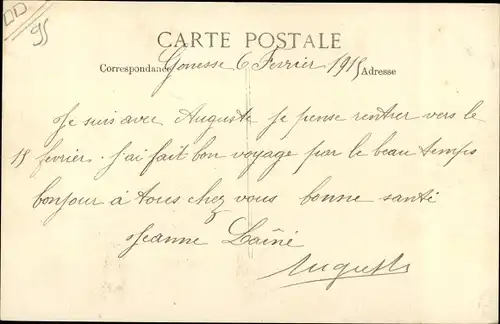 DD
95
CARTE POSTALE
Correspondance Gonesse 6 Fevrier 1915 Adresse
Je suis avec Auguste je pense rentrer vers le
15 fevrier. J'ai fait bon voyage par le beau temps
bonjour à tous chez vous bonne santé
Jeanne Lainé
Auguste